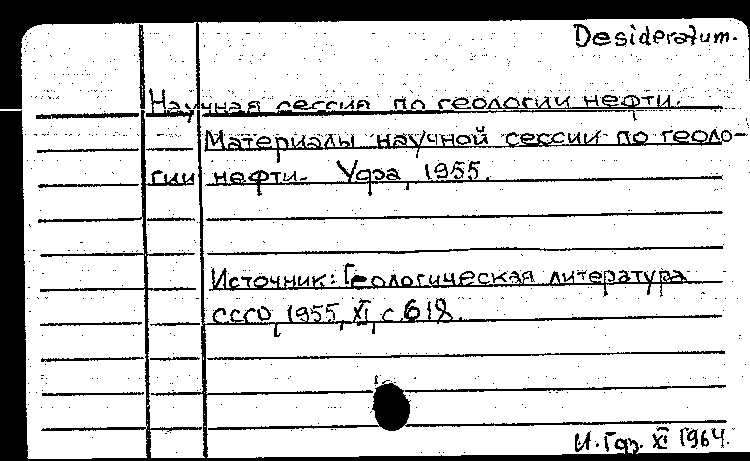 Desideratum.
Научная сессия по геологии нефти.
Материалы научной сессии по геоло-
гии нефти. Уфа, 1955.
Источник: Геологическая литература
СССР, 1955, XI, с. 618.
XI 1964.